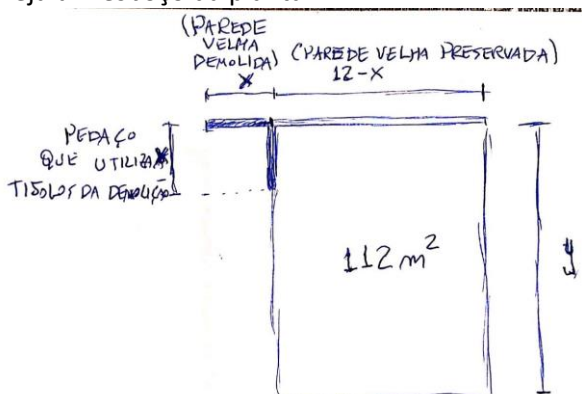 (PAREDE
VELHA
DEMOLIDA)
X
(PAREDE VELHA PRESERVADA)
12-X
PEDAÇO
QUE UTILIZA
TIJOLOS DA DEMOLIÇÃO
X
112 m²
y